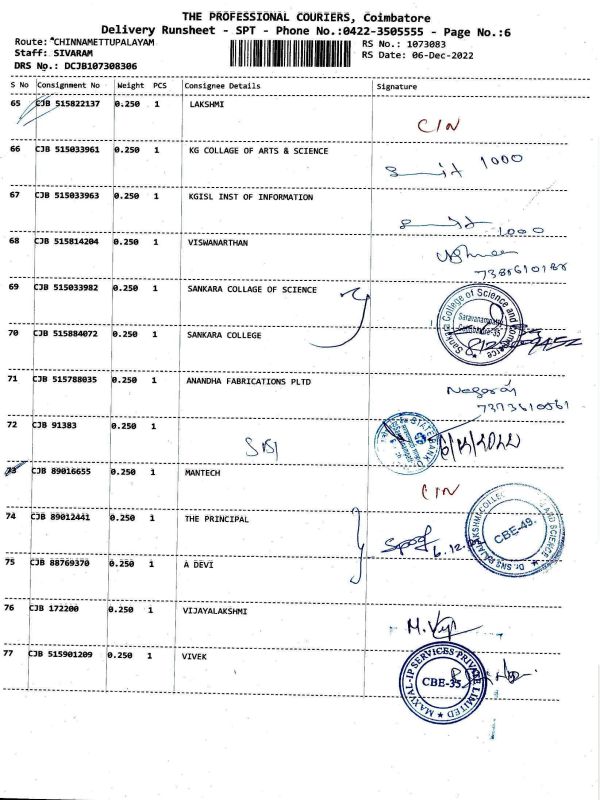 THE PROFESSIONAL COURIERS, Coimbatore
Delivery Runsheet - SPT - Phone No.:0422-3505555 - Page No.:6
Route: *CHINNAMETTUPALAYAM
RS No.: 1073083
Staff: SIVARAM
RS Date: 06-Dec-2022
DRS No.: DCJB107308306
S No Consignment No Weight PCS Consignee Details Signature
65 CJB 515822137 0.250 1 LAKSHMI
CIN
66 CJB 515033961 0.250 1 KG COLLAGE OF ARTS & SCIENCE
1000
67 CJB 515033963 0.250 1 KGISL INST OF INFORMATION
1000
68 CJB 515814204 0.250 1 VISWANARTHAN
69 CJB 515033982 0.250 1 SANKARA COLLAGE OF SCIENCE
Sankara College of Science and Commerce
Saravanampatty
Coimbatore-35
70 CJB 515884072 0.250 1 SANKARA COLLEGE
71 CJB 515788035 0.250 1 ANANDHA FABRICATIONS PLTD
Nagaraj
7373610061
72 CJB 91383 0.250 1
SBI
STATE BANK
6/12/2022
73 CJB 89016655 0.250 1 MANTECH
CIN
74 CJB 89012441 0.250 1 THE PRINCIPAL
6.12.
CBE-49.
AND SCIENCE
Dr. SNS RAJALAKSHMI COLLEGE
75 CJB 88769370 0.250 1 A DEVI
76 CJB 172200 0.250 1 VIJAYALAKSHMI
77 CJB 515901209 0.250 1 VIVEK
MAXVAL-IP SERVICES PRIVATE LIMITED
CBE-35.